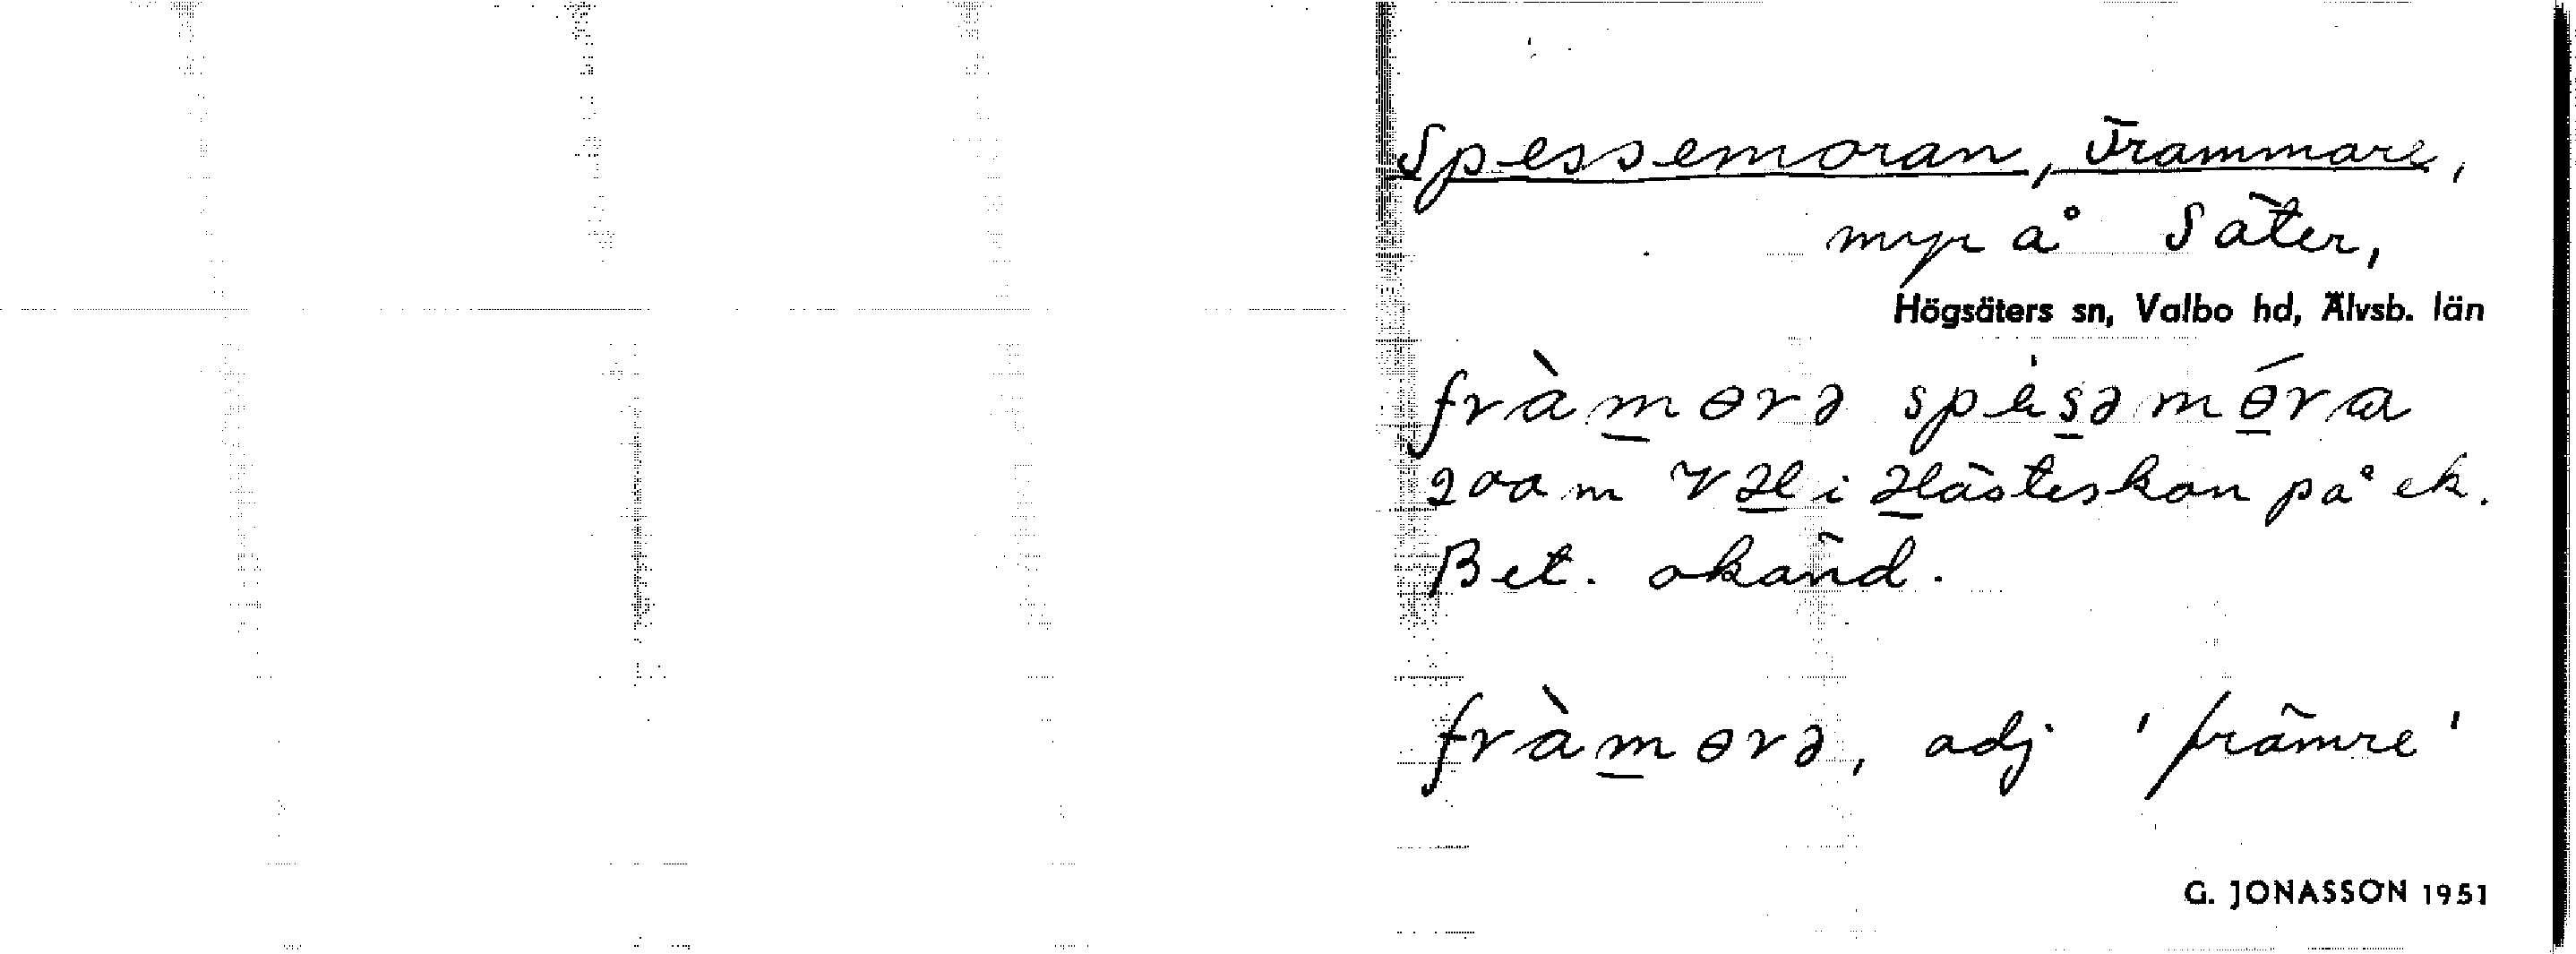 Spessemoran, Frammare,
myr å Säter,
Högsäters sn, Valbo hd, Älvsb. län
fràmɵrə spèsəmɵ́ra
200 m V Hl i Hästeskon på ek.
Bet. okänd.
fràmɵrə, adj 'främre'
G. JONASSON 1951